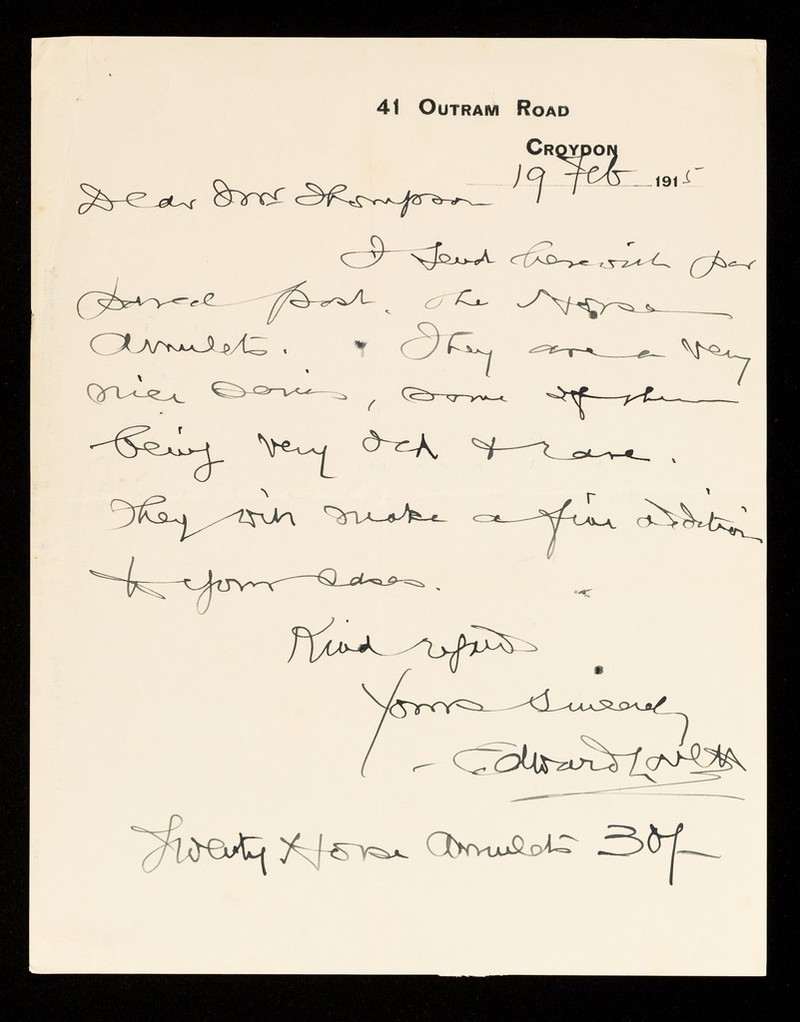 41 OUTRAM ROAD
CROYDON
19 Feb 1915
Dear Mr Thompson
I send herewith per
parcel post. the Horse
Amulets. They are a very
nice series, some of them
being very old & rare.
They will make a fine addition
to your cases.
Kind regards
Yours sincerely
Edward Lovett
Twenty Horse Amulets 30/-